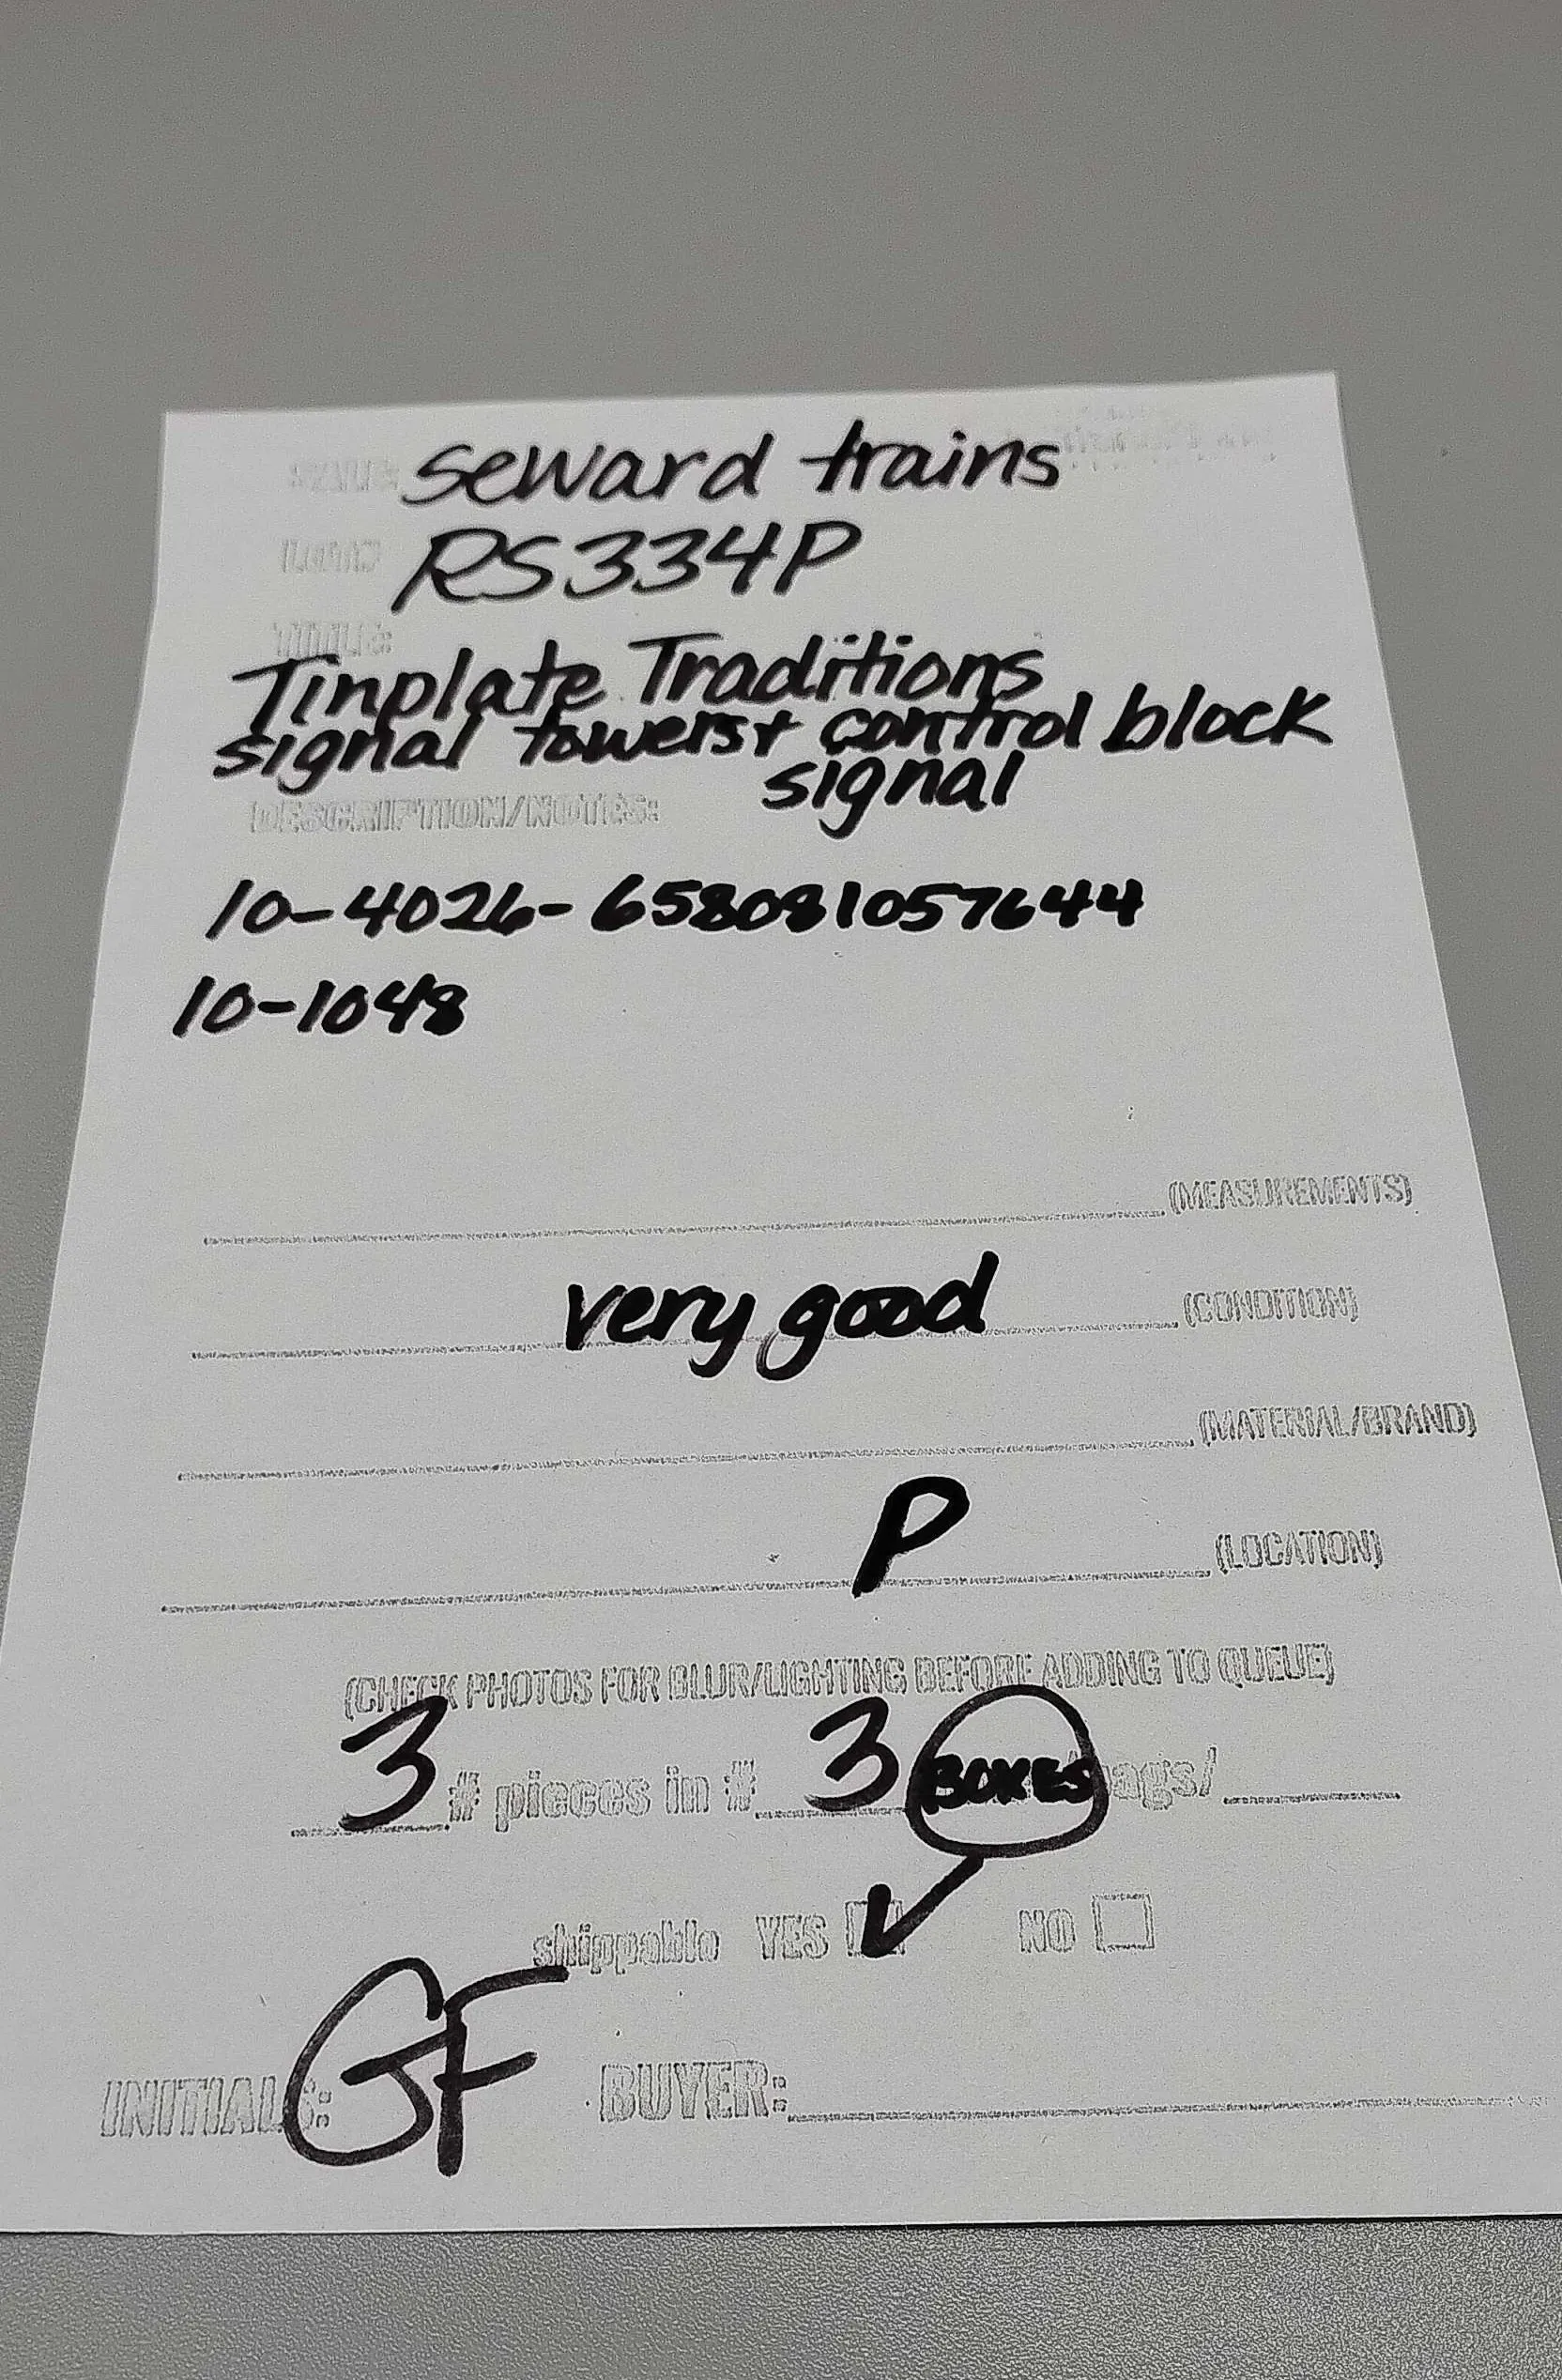 seward trains
RS334P
TITLE:
Tinplate Traditions
signal towers+ control block
signal
DESCRIPTION/NOTES:
10-4026-658081057644
10-1048
(MEASUREMENTS)
very good (CONDITION)
(MATERIAL/BRAND)
P (LOCATION)
(CHECK PHOTOS FOR BLUR/LIGHTING BEFORE ADDING TO QUEUE)
3 # pieces in # 3 BOXES/
shippable YES ✓ NO
INITIALS: GF BUYER: